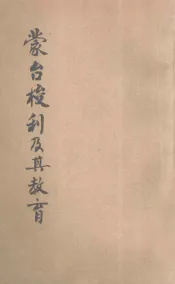 蒙台梭利及其教育